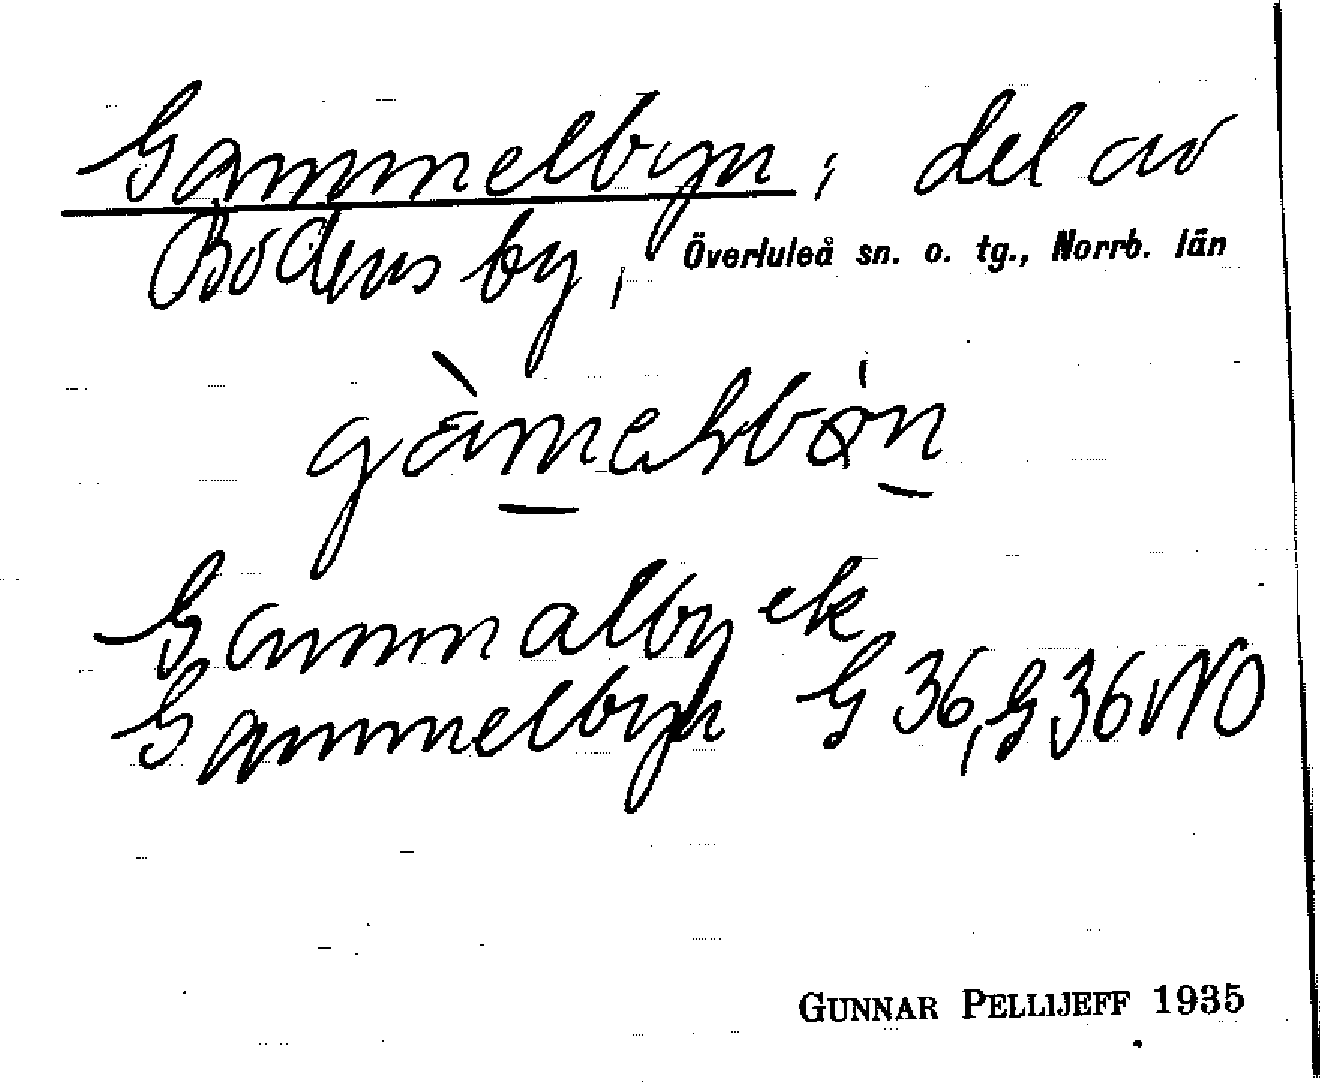 Gammelbyn, del av
Bodens by, Överluleå sn. o. tg., Norrb. län
Gammalby ek
Gammelbyn G 36, G 36 NO
GUNNAR PELLIJEFF 1935